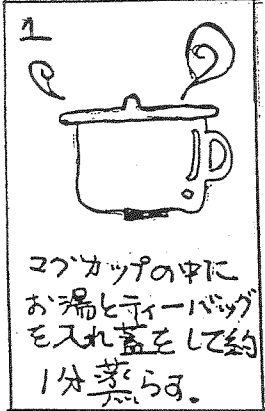 1
マグカップの中に
お湯とティーバッグ
を入れ蓋をして約
1分蒸らす.